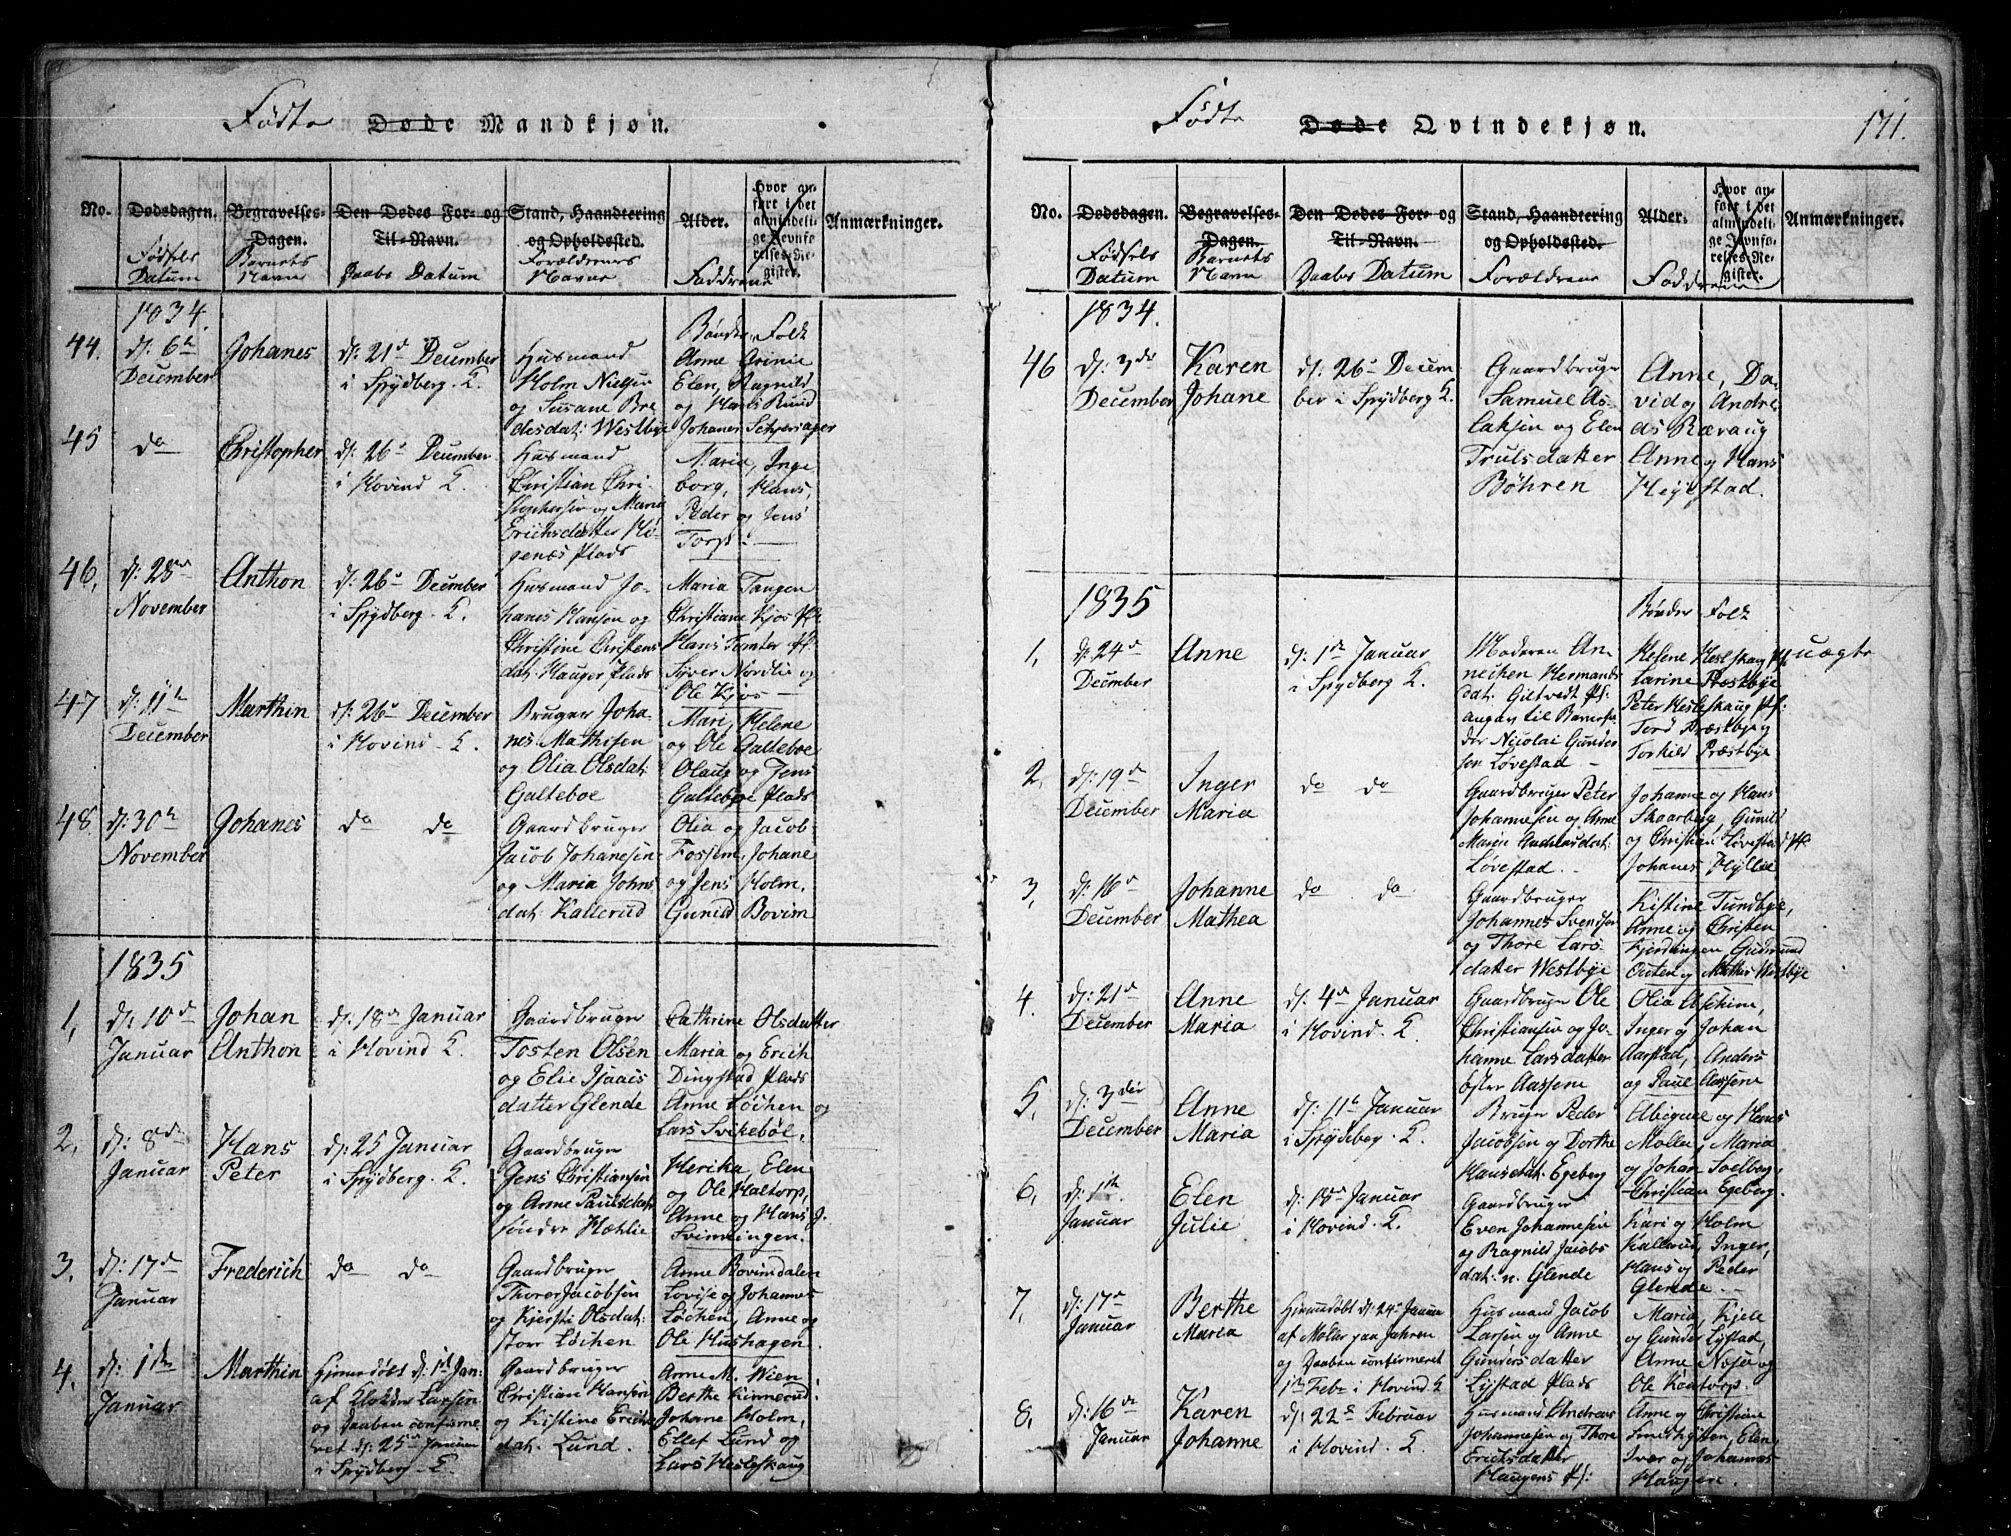 Fødte Døde Mandkjøn.
No.
Dødsdagen.
Fødsels
Datum
Begravelses-
Dagen.
Barnets
Navne
Den Dødes For- og
Til-Navn.
Daabs Datum
Stand, Haandtering
og Opholdssted.
Forældrenes
Navne
Alder.
Faddrene
Hvor an-
ført i det
almindeli-
ge Jevnfø-
relses-Re-
gister.
Anmærkninger.
1834.
44.
d: 6te
December
Johanes
d: 21de December
i Spydberg K.
Husmand
Holm Nielsen
og Susane Bre
desdat: Westbye
Bønder Folk
Anne Grinie
Elen, Ragnild
og Hans Rund
Johanes Schjersager
45
do
Christopher
d: 26de December
i Hovind K.
Husmand
Christian Chri-
stophersen og Marie
Erichsdatter Hø-
genæs Plads
Maria, Inge
borg, Hans,
Peder og Jens
Torp.
46,
d: 28de
November
Anthon
d: 26de December
i Spydberg K.
Husmand Jo-
hanes Hansen og
Christine Christens
dat: Hauger Plads
Maria Tangen
Christiane Kjos
Hans Tomter
Syver Nordlie og
Ole Kjos
47
d: 11te
December
Marthin
d: 26de December
i Hovind K.
Bruger Joha-
nes Mathisen
og Olia Olsdat:
Galteboe
Mari, Helene
og Ole Galteboe
Olaug og Jens
Galteboe Plads
48
d: 30te
November
Johanes
do do
Gaardbruger
Jacob Johanesen
og Maria Johns
dat: Kallerud
Olia og Jacob
Fossem, Johane
og Jens Holm.
Gunild Bovim
1835
1,
d: 10de
Januar
Johan
Anthon
d: 18de Januar
i Hovind K.
Gaardbruger
Tosten Olsen
og Elie Isaacs
datter Glende
Cathrine Olsdatter
Maria og Erich
Dingstad Plads
Anne Løchen og
Lars Svikebøl,
2,
d: 8de
Januar
Hans
Peter
d: 25 Januar
i Spydberg K.
Gaardbruger
Jens Christiansen
og Anne Paulsdat:
søndre Hæhlie
Herika, Elen
og Ole Haltorp,
Anne og Hans J.
Svinningen.
3,
d: 17de
Januar
Frederich
do do
Gaardbruger
Thoror Jacobsen
og Kjersti Olsdat:
store Løchen
Anne Bovimdalen
Lovise og Johannes
Løchen, Anne og
Ole Hushagen.
4,
d: 1den
Januar
Marthin
Hjemedøbt d: 1st Jan:
af Klokker Larsen
og Daaben confirme
ret d: 25de Januar
i Spydberg K.
Gaardbruger
Christian Hansen
og Kistine Erichs
dat: Lund.
Anne M. Wien
Berthe Kinnerud,
Johane Holm,
Ellef Lund og
Lars Heslefkaug
Fødte Døde Qvindekjøn.
171.
No.
Dødsdagen.
Fødsels
Datum
Begravelses-
Dagen.
Barnets
Navn
Den Dødes For- og
Til-Navn.
Daabs Datum
Stand, Haandtering
og Opholdssted.
Forældrene
Alder.
Faddrene
Hvor an-
ført i det
almindeli-
ge Jevnfø-
relses-Re-
gister.
Anmærkninger.
1834.
46
d: 3de
December
Karen
Johane
d: 26de Decem
ber i Spydberg K.
Gaardbruger
Samuel As-
laksen og Elen
Trulsdatter
Bøhren
Anne, Da-
vid og Andre-
as Rævaug
Anne og Hans
Hejestad.
1835
1,
d: 24de
December
Anne
d: 1ste Januar
i Spydberg K.
Moderen An-
nechen Hermands
dat: Giltvedt Pl:
angav til Barnefa-
der Nicolai Gunder
sen Løvestad
Bønder Folk
Helene Heslefkaug
Karine Præstbye
Peter Heslefkaug
Tord Præstbye og
Torkild Præstbye
uægte
2,
d: 19de
December
Inger
Maria
do do
Gaardbruger Peter
Johannesen og Anne
Marie Andersdat:
Løvestad.
Johanne og Hans
Skaarberg, Gunil
og Christian Løvestad
Johanes Hyllie
3,
d: 16de
December
Johanne
Mathea
do do
Gaardbruger
Johannes Svendsen
og Thore Lars
datter Westbye
Kistine Tundbye,
Anne og Christen
Fjerdingen Gudmund
Outen og Mathis Westbye
4.
d: 21de
December
Anne
Maria
d: 4de Januar
i Hovind K.
Gaardbruger Ole
Christiansen og Jo-
hanne Larsdatter
Øster Aassene
Olia Aschim,
Inger og Johan
Aarstad, Anders
og Paul Aassene
5,
d: 3die
December
Anne
Maria
d: 11te Januar
i Spydeberg K.
Bruger Peder
Jacobsen og Dorthe
Hansdat: Egeberg
Abiguel og Hans
Moller, Maria
og Johan Soelberg,
Christian Egeberg.
6,
d: 1ste
Januar
Elen
Julie
d: 18de Januar
i Hovind K.
Gaardbruger
Even Johannesen
og Ragnild Jacobs
dat: n. Glende
Kari og Holm
Kallerud, Inger,
Hans og Peder
Glende.
7,
d: 17de
Januar
Berthe
Maria
Hjemedøbt d: 24de Januar
af Moller paa Jahren
og Daaben confirmeret
1ste Febr i Hovind K
Husmand Jacob
Larsen og Anne
Gundersdatter
Lystad Plads
Maria, Kjele
og Gunder Lystad,
Anne Næsen og
Ole Kaatorp.
8,
d: 16de
Januar
Karen
Johanne
d: 22de Februar
i Hovind K.
Husmand Andreas
Johannesen og Thore
Erichsdatter
Haugens Pl:
Anne og Christiane
Smedhytten, Elen,
Iver og Johannes
Haugen.